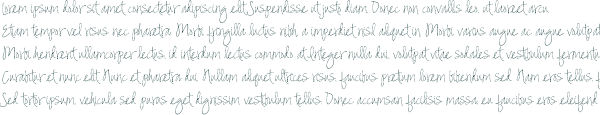 Lorem ipsum dolor sit amet, consectetur adipiscing elit. Suspendisse ut justo diam. Donec non convallis leo, ut laoreet arcu.
Etiam tempor vel risus nec pharetra. Morbi fringilla luctus nibh, a imperdiet nisl aliquet in. Morbi varius augue ac augue volutpat
Morbi hendrerit ullamcorper lectus, id interdum lectus commodo at. Integer nulla dui, volutpat vitae sodales et, vestibulum fermentu
Curabitur et nunc elit. Nunc et pharetra dui. Nullam aliquet ultrices risus, faucibus pretium lorem bibendum sed. Nam eros tellus, f
Sed tortor ipsum, vehicula sed purus eget, dignissim vestibulum tellus. Donec accumsan facilisis massa, eu faucibus eros eleifend